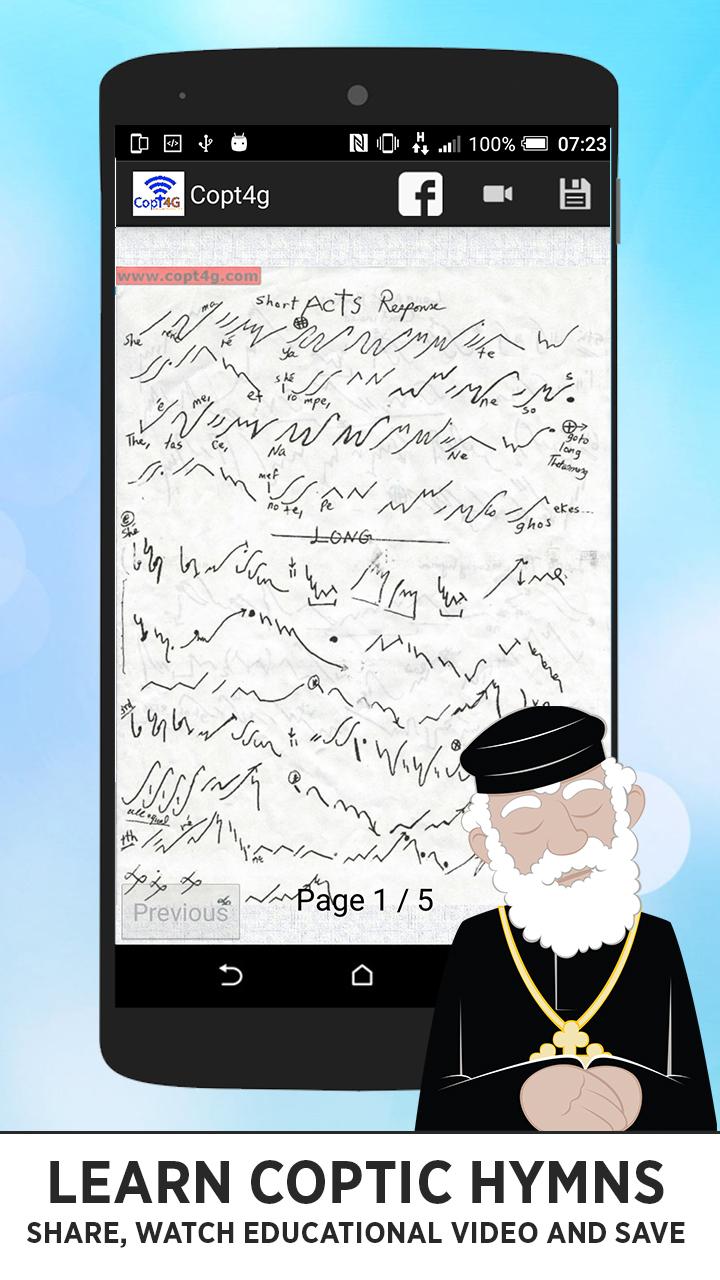 H
100%
07:23
Copt4G
Copt4g
www.copt4g.com
short ACTS Response
She rene ma ré ya te
et shé ro mpe, ne so s
The, tas é mer ce, Na Ne
goto
long
mef
no te, Pe ghos ekes...
LONG
She
3rd
all equal
4th
Previous
Page 1 / 5
LEARN COPTIC HYMNS
SHARE, WATCH EDUCATIONAL VIDEO AND SAVE